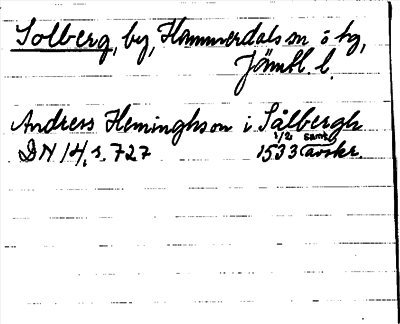 Solberg, by, Hammerdals sn o hg,
Jämtl. l.
Andress Heminghson i Sålbergh
DN 14, s. 727 1533 1/2 samt. avskr.